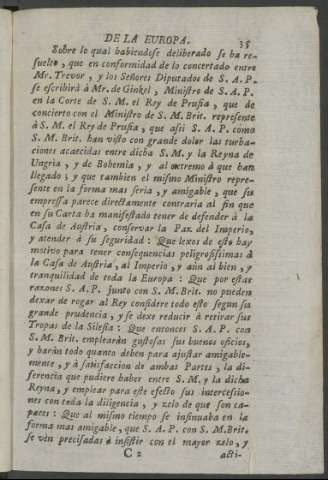 DE LA EUROPA. 35
Sobre lo qual habiendose deliberado se ha re-
suelto, que en conformidad de lo concertado entre
Mr. Trevor, y los Señores Diputados de S. A. P.
se escribirà à Mr. de Ginkel, Ministro de S. A. P.
en la Corte de S. M. el Rey de Prusia, que de
concierto con el Ministro de S. M. Brit. represente
à S. M. el Rey de Prusia, que assi S. A. P. como
S. M. Brit. han visto con grande dolor las turba-
ciones acaecidas entre dicha S. M. y la Reyna de
Ungria, y de Bohemia, y al extremo à que han
llegado; y que tambien el mismo Ministro repre-
sente en la forma mas seria, y amigable, que su
empressa parece directamente contraria al fin que
en su Carta ha manifestado tener de defender à la
Casa de Austria, conservar la Paz del Imperio,
y atender à su seguridad: Que lexos de esto hay
motivo para tener consequencias peligrosissimas à
la Casa de Austria, al Imperio, y aùn al bien, y
tranquilidad de toda la Europa: Que por estas
razones S. A. P. junto con S. M. Brit. no pueden
dexar de rogar al Rey considere todo esto segun su
grande prudencia, y se dexe reducir à retirar sus
Tropas de la Silesia: Que entonces S. A. P. con
S. M. Brit. emplearàn gustosas sus buenos oficios,
y haràn todo quanto deben para ajustar amigable-
mente, y à satisfaccion de ambas Partes, la di-
ferencia que pudiere haber entre S. M. y la dicha
Reyna, y emplear para este efecto sus intercessio-
nes con toda la diligencia, y zelo de que son ca-
paces: Que al mismo tiempo se insinuaba en la
forma mas amigable, que S. A. P. con S. M. Brit.
se vèn precisadas à insistir con el mayor zelo, y
C 2 acti-